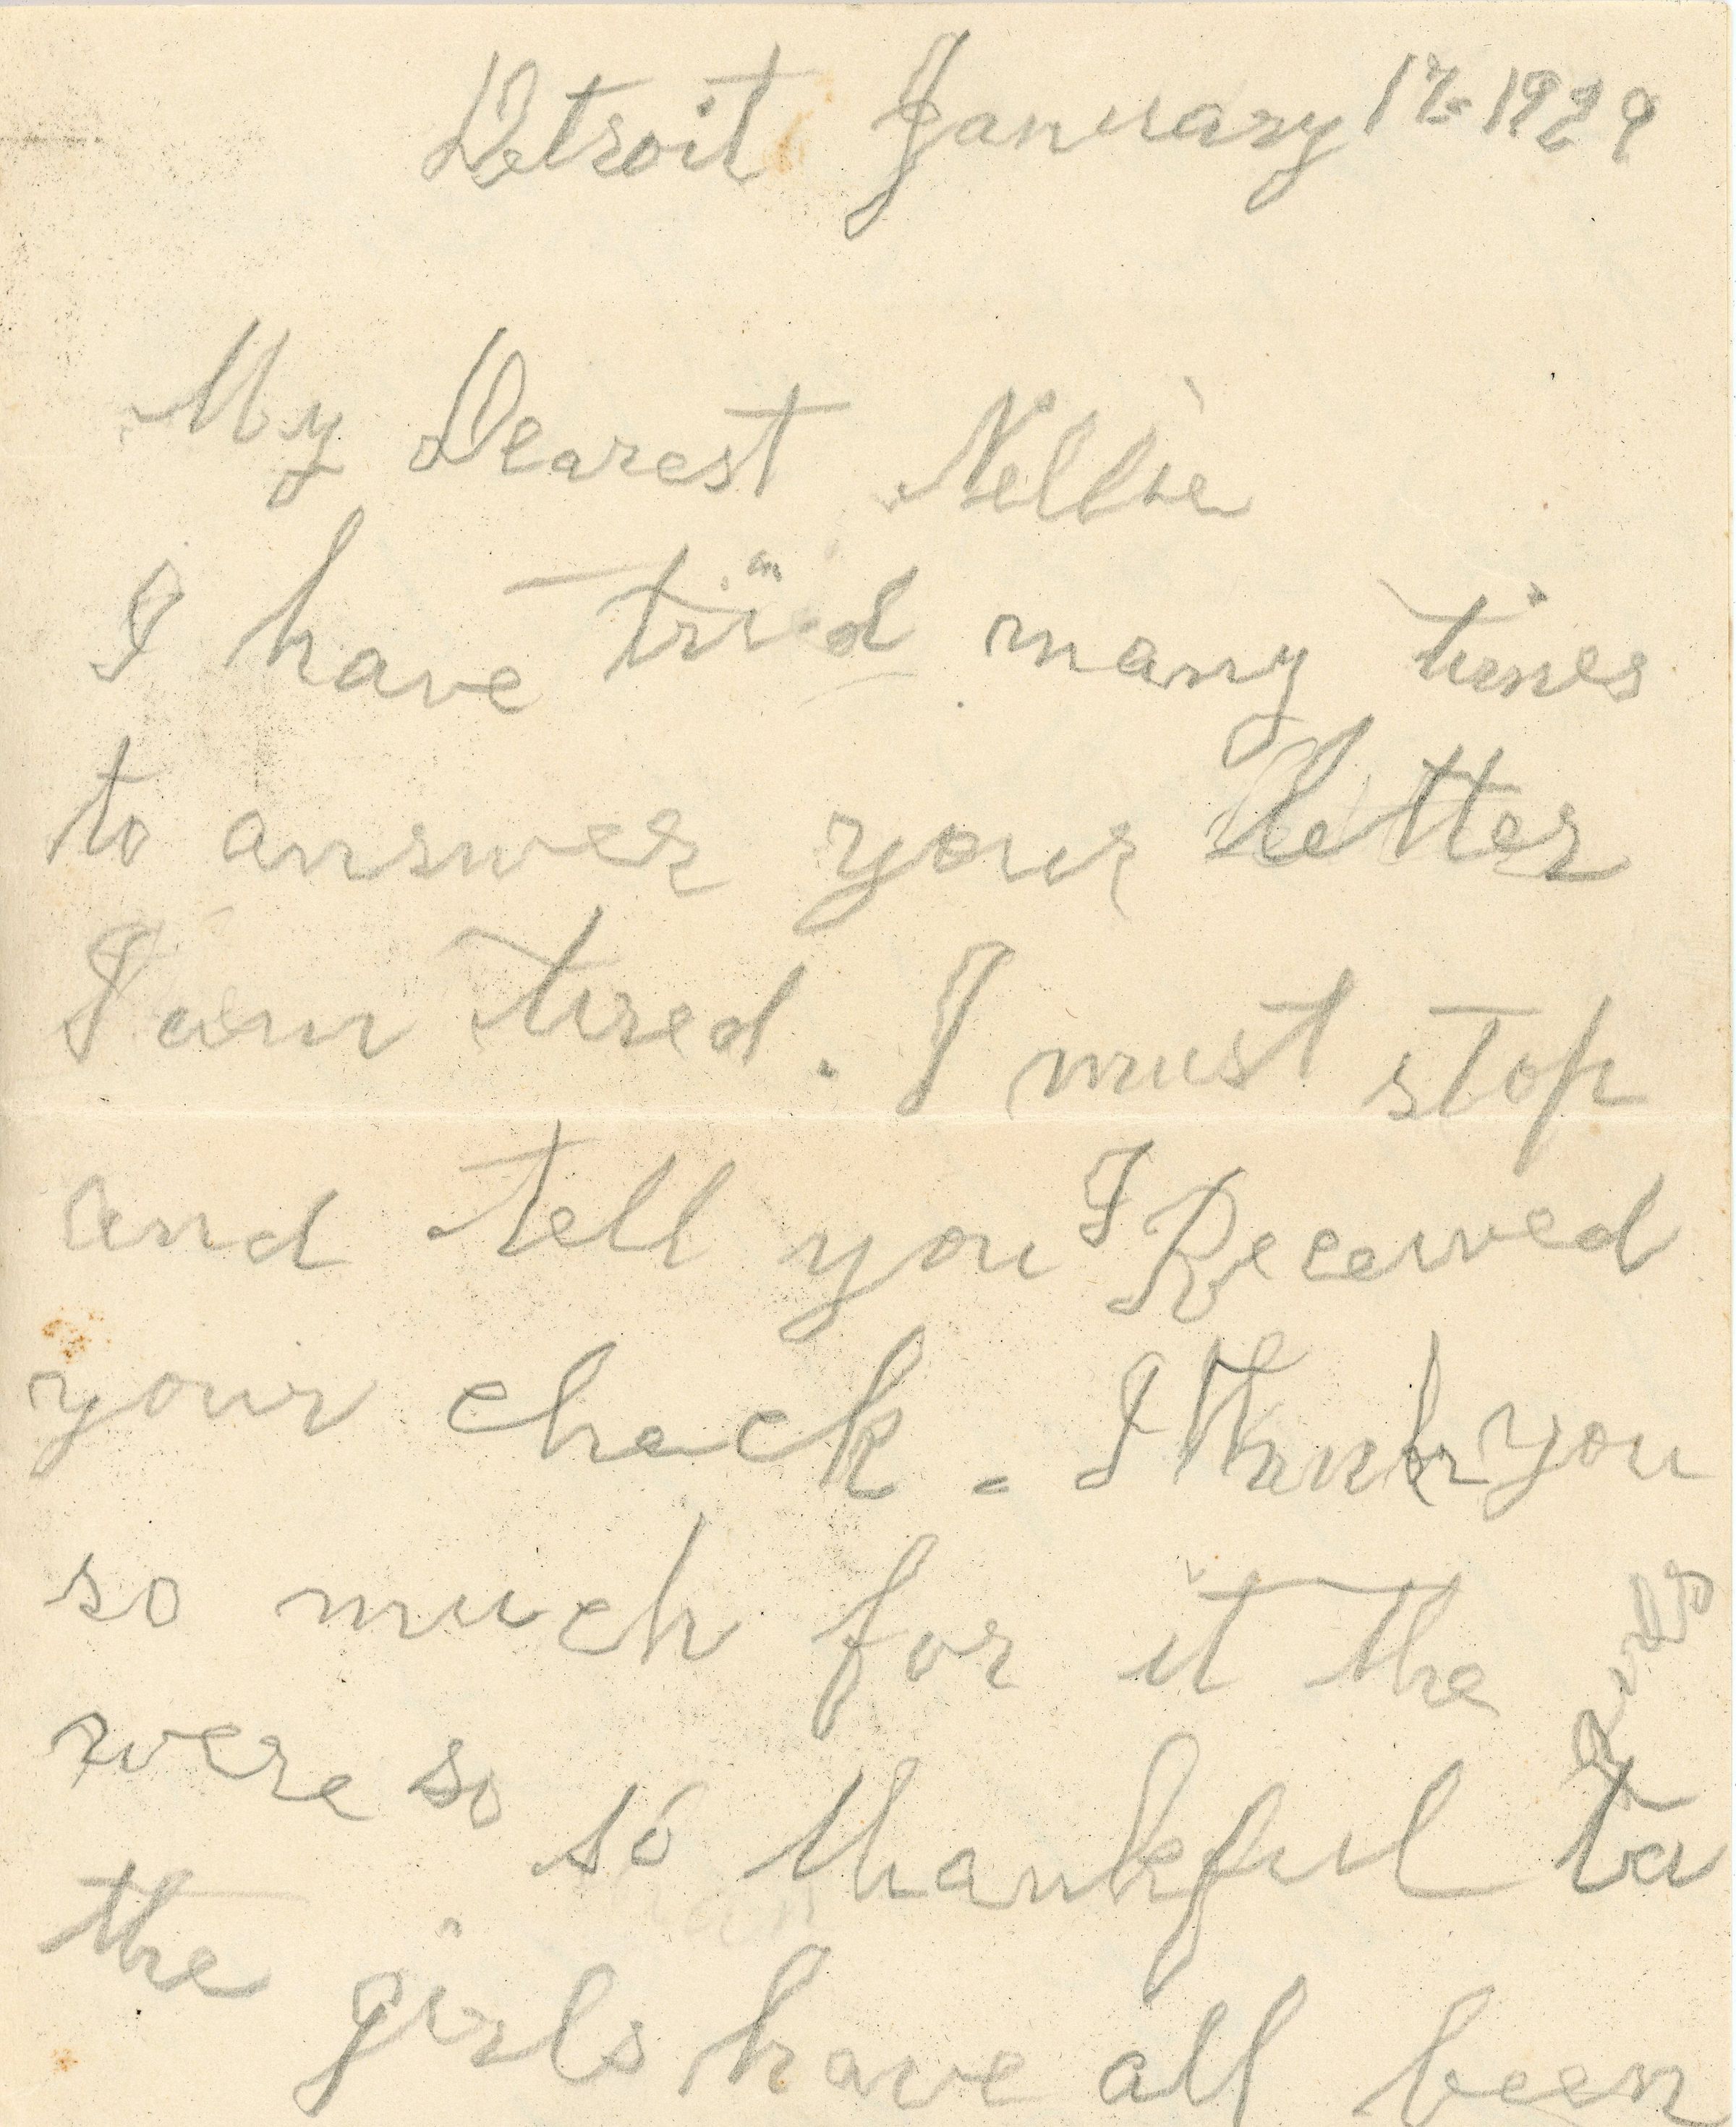 Detroit January 17-1929
My Dearest Nellie
I have tried many times
to answer your letter
I am tired. I must stop
and tell you I Received
your check - I thank you
so much for it the girls
were so so thankful to
the girls have all been